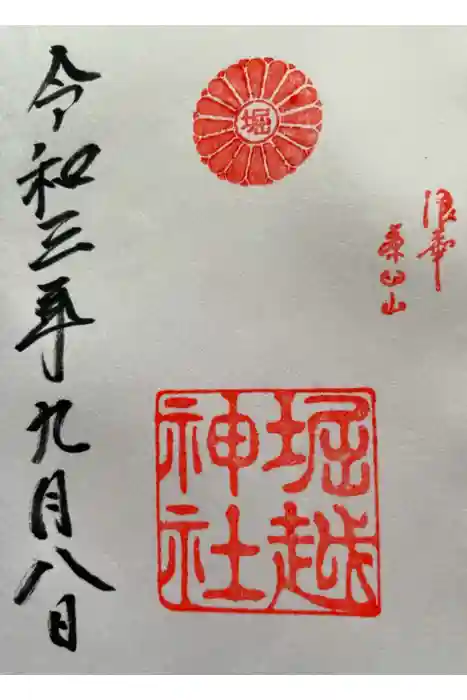 堀
浪華
茶臼山
堀越
神社
令和三年九月八日